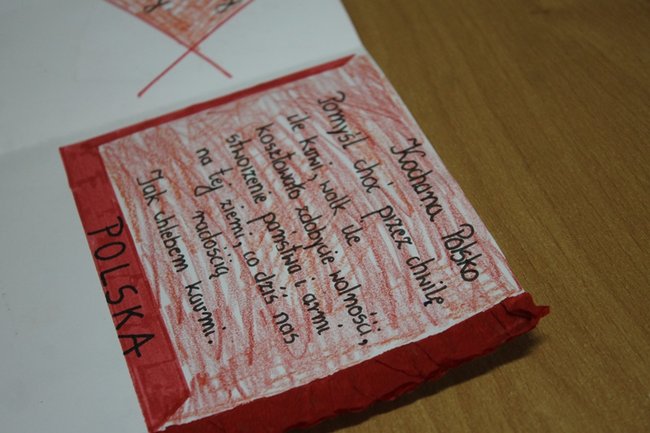 Kochana Polsko
Pomyśl choć przez chwilę
ile krwi, walk ile
kosztowało zdobycie wolności,
stworzenie państwa i armi
na tej ziemi, co dziś nas
radością
Jak chlebem karmi.
POLSKA